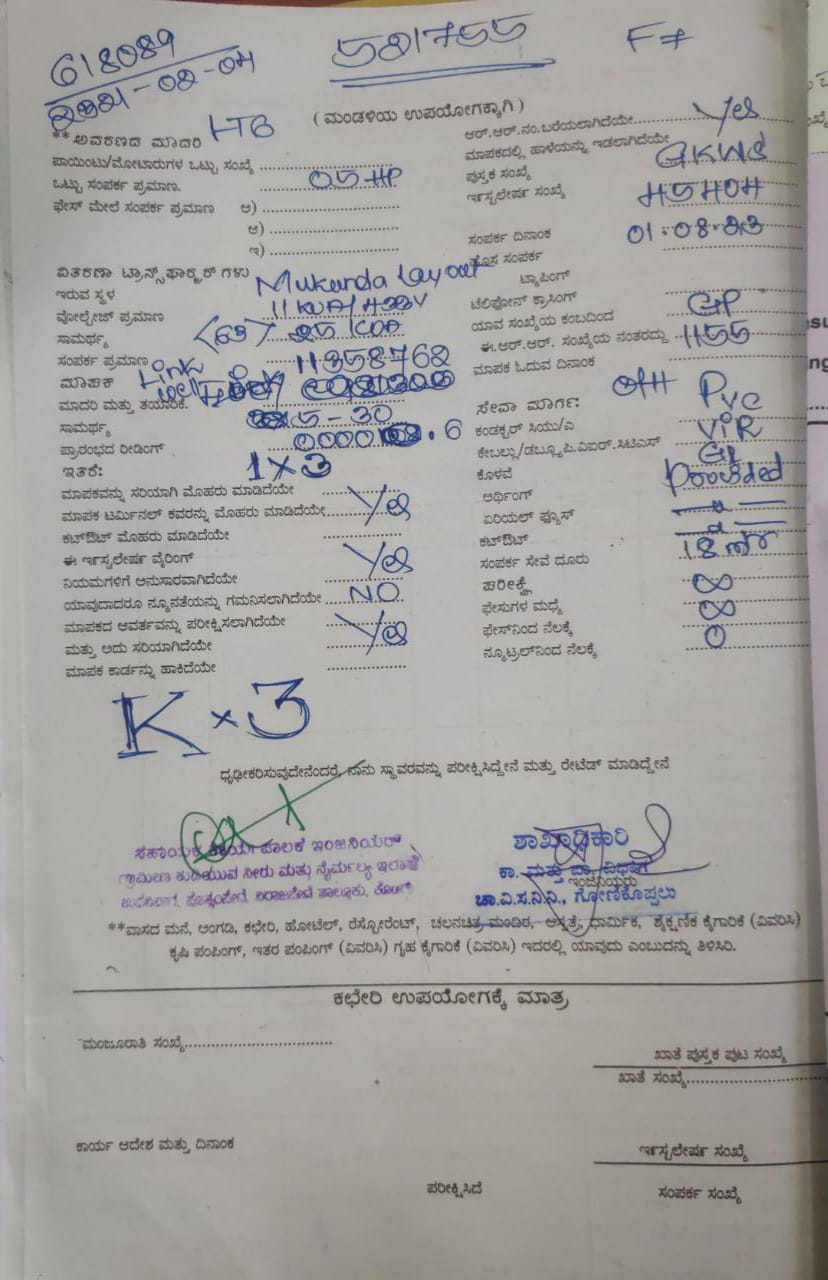 618089
581755
F7
(ಮಂಡಳಿಯ ಉಪಯೋಗಕ್ಕಾಗಿ)
**ಅವರಣದ ಮಾದರಿ
ಪಾಯಿಂಟು/ಮೋಟಾರುಗಳ ಒಟ್ಟು ಸಂಖ್ಯೆ
ಒಟ್ಟು ಸಂಪರ್ಕ ಪ್ರಮಾಣ. 05 HP
ಫೇಸ್ ಮೇಲೆ ಸಂಪರ್ಕ ಪ್ರಮಾಣ ಅ)
ಆ)
ಇ)
ವಿತರಣಾ ಟ್ರಾನ್ಸ್‌ಫಾರ್ಮರ್ ಗಳು
ಇರುವ ಸ್ಥಳ Mukunda Layout
ವೋಲ್ಟೇಜ್ ಪ್ರಮಾಣ
ಸಾಮರ್ಥ್ಯ <63> 25
ಸಂಪರ್ಕ ಪ್ರಮಾಣ
ಮಾಪಕ 11358762
ಮಾದರಿ ಮತ್ತು ತಯಾರಿಕೆ.
ಸಾಮರ್ಥ್ಯ 5-30
ಪ್ರಾರಂಭದ ರೀಡಿಂಗ್
ಇತರೆ: 1x3
ಮಾಪಕವನ್ನು ಸರಿಯಾಗಿ ಮೊಹರು ಮಾಡಿದೆಯೇ
ಮಾಪಕ ಟರ್ಮಿನಲ್ ಕವರನ್ನು ಮೊಹರು ಮಾಡಿದೆಯೇ Yes
ಕಟ್‌ಔಟ್ ಮೊಹರು ಮಾಡಿದೆಯೇ
ಈ ಇನ್ಸ್ಟಲೇಷನ ವೈರಿಂಗ್
ನಿಯಮಗಳಿಗೆ ಅನುಸಾರವಾಗಿದೆಯೇ Yes
ಯಾವುದಾದರೂ ನ್ಯೂನತೆಯನ್ನು ಗಮನಿಸಲಾಗಿದೆಯೇ NO
ಮಾಪಕದ ಆವರ್ತವನ್ನು ಪರೀಕ್ಷಿಸಲಾಗಿದೆಯೇ
ಮತ್ತು ಅದು ಸರಿಯಾಗಿದೆಯೇ Yes
ಮಾಪಕ ಕಾರ್ಡನ್ನು ಹಾಕಿದೆಯೇ
ಆರ್.ಆರ್.ನಂ.ಬರೆಯಲಾಗಿದೆಯೇ Yes
ಮಾಪಕದಲ್ಲಿ ಹಾಳೆಯನ್ನು ಇಡಲಾಗಿದೆಯೇ
ಪುಸ್ತಕ ಸಂಖ್ಯೆ GKWS
ಇನ್ಸ್ಟಲೇಷನ ಸಂಖ್ಯೆ
ಸಂಪರ್ಕ ದಿನಾಂಕ 01.08.23
ಹೊಸ ಸಂಪರ್ಕ
ಟ್ಯಾಪಿಂಗ್
ಟೆಲಿಫೋನ್ ಕ್ರಾಸಿಂಗ್
ಯಾವ ಸಂಖ್ಯೆಯ ಕಂಬದಿಂದ GP
ಈ.ಆರ್.ಆರ್. ಸಂಖ್ಯೆಯ ನಂತರದ್ದು 1155
ಮಾಪಕ ಓದುವ ದಿನಾಂಕ
ಸೇವಾ ಮಾರ್ಗ: OH
ಕಂಡಕ್ಟರ್ ಸಿಯು/ಎ PVC
ಕೇಬಲ್ಲು/ಡಬ್ಲ್ಯೂ.ಪಿ.ವಿಐಆರ್.ಸಿಟಿಎಸ್ VIR
ಕೊಳವೆ GI
ಅರ್ಥಿಂಗ್ Provided
ಏರಿಯಲ್ ಫ್ಯೂಸ್
ಕಟ್‌ಔಟ್
ಸಂಪರ್ಕ ಸೇವೆ ದೂರು 18 mtr
ಪರೀಕ್ಷೆ
ಫೇಸುಗಳ ಮಧ್ಯೆ ∞
ಫೇಸ್‌ನಿಂದ ನೆಲಕ್ಕೆ ∞
ನ್ಯೂಟ್ರಲ್‌ನಿಂದ ನೆಲಕ್ಕೆ 0
K x 3
ಧೃಢೀಕರಿಸುವುದೇನೆಂದರೆ, ನಾನು ಸ್ಥಾವರವನ್ನು ಪರೀಕ್ಷಿಸಿದ್ದೇನೆ ಮತ್ತು ರೇಟೆಡ್ ಮಾಡಿದ್ದೇನೆ
ಸಹಾಯಕ ಕಾರ್ಯಪಾಲಕ ಇಂಜಿನಿಯರ್
ಗ್ರಾಮೀಣ ಕುಡಿಯುವ ನೀರು ಮತ್ತು ನೈರ್ಮಲ್ಯ ಇಲಾಖೆ
ಶಾಖಾಧಿಕಾರಿ
ಕಾ. ಮತ್ತು ಪಾ. ವಿಭಾಗ
ಇಂಜಿನಿಯರು
ಚಾ.ವಿ.ಸ.ನಿ.ನಿ., ಗೋಣಿಕೊಪ್ಪಲು
**ವಾಸದ ಮನೆ, ಅಂಗಡಿ, ಕಛೇರಿ, ಹೋಟೆಲ್, ರೆಸ್ಟೋರೆಂಟ್, ಚಲನಚಿತ್ರ ಮಂದಿರ, ಆಸ್ಪತ್ರೆ, ಧಾರ್ಮಿಕ, ಶೈಕ್ಷಣಿಕ ಕೈಗಾರಿಕೆ (ವಿವರಿಸಿ)
ಕೃಷಿ ಪಂಪಿಂಗ್, ಇತರ ಪಂಪಿಂಗ್ (ವಿವರಿಸಿ) ಗೃಹ ಕೈಗಾರಿಕೆ (ವಿವರಿಸಿ) ಇದರಲ್ಲಿ ಯಾವುದು ಎಂಬುದನ್ನು ತಿಳಿಸಿರಿ.
ಕಛೇರಿ ಉಪಯೋಗಕ್ಕೆ ಮಾತ್ರ
ಮಂಜೂರಾತಿ ಸಂಖ್ಯೆ
ಖಾತೆ ಪುಸ್ತಕ ಪುಟ ಸಂಖ್ಯೆ
ಖಾತೆ ಸಂಖ್ಯೆ
ಕಾರ್ಯ ಆದೇಶ ಮತ್ತು ದಿನಾಂಕ
ಇನ್ಸ್ಟಲೇಷನ ಸಂಖ್ಯೆ
ಪರೀಕ್ಷಿಸಿದೆ
ಸಂಪರ್ಕ ಸಂಖ್ಯೆ